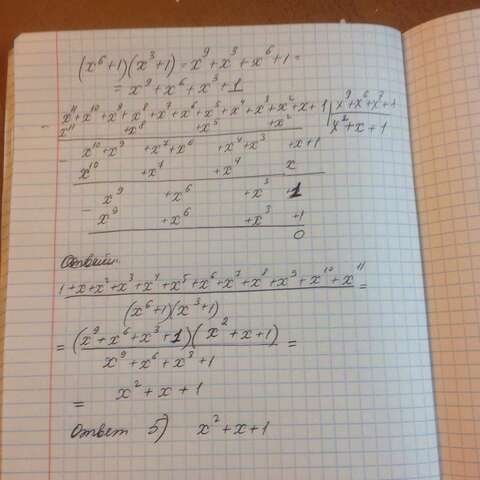 (x⁶+1)(x³+1) = x⁹+x³+x⁶+1 =
= x⁹+x⁶+x³+1
- x¹¹+x¹⁰+x⁹+x⁸+x⁷+x⁶+x⁵+x⁴+x³+x²+x+1 | x⁹+x⁶+x³+1
x¹¹ +x⁸ +x⁵ +x² | x²+x+1
- x¹⁰+x⁹ +x⁷+x⁶ +x⁴+x³ +x+1
x¹⁰ +x⁷ +x⁴ x
- x⁹ +x⁶ +x³ +1
x⁹ +x⁶ +x³ +1
0
1+x+x²+x³+x⁴+x⁵+x⁶+x⁷+x⁸+x⁹+x¹⁰+x¹¹ =
(x⁶+1)(x³+1)
= (x⁹+x⁶+x³+1)(x²+x+1) =
x⁹+x⁶+x³+1
= x²+x+1
Ответ 5) x²+x+1